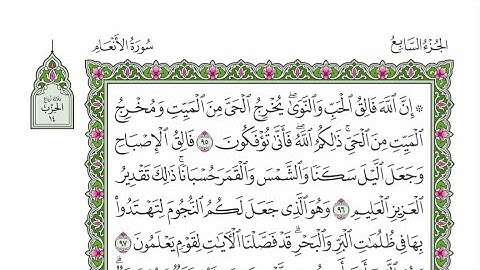 الجُزْءُ السَّابِعُ
سُورَةُ الأَنْعَامِ
ثلاثة أرباع
الحزب
١٤
۞ إِنَّ ٱللَّهَ فَالِقُ ٱلْحَبِّ وَٱلنَّوَىٰۖ يُخْرِجُ ٱلْحَيَّ مِنَ ٱلْمَيِّتِ وَمُخْرِجُ
ٱلْمَيِّتِ مِنَ ٱلْحَيِّۚ ذَٰلِكُمُ ٱللَّهُۖ فَأَنَّىٰ تُؤْفَكُونَ ٩٥ فَالِقُ ٱلْإِصْبَاحِ
وَجَعَلَ ٱلَّيْلَ سَكَنًا وَٱلشَّمْسَ وَٱلْقَمَرَ حُسْبَانًاۚ ذَٰلِكَ تَقْدِيرُ
ٱلْعَزِيزِ ٱلْعَلِيمِ ٩٦ وَهُوَ ٱلَّذِي جَعَلَ لَكُمُ ٱلنُّجُومَ لِتَهْتَدُوا۟
بِهَا فِي ظُلُمَٰتِ ٱلْبَرِّ وَٱلْبَحْرِۗ قَدْ فَصَّلْنَا ٱلْءَايَٰتِ لِقَوْمٍ يَعْلَمُونَ ٩٧